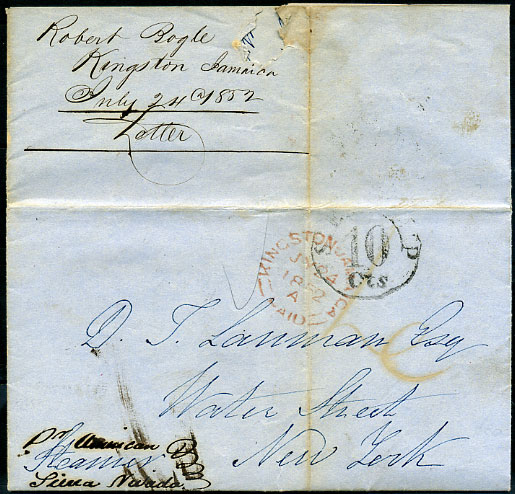 Robert Bogle
Kingston Jamaica
July 24th 1852
Letter
KINGSTON JAMAICA
24
1852
A
PAID
S P
10
Cts
D. T. Lanman Esq
Water Street
New York
Pr American
Steamer
Sierra Nevada